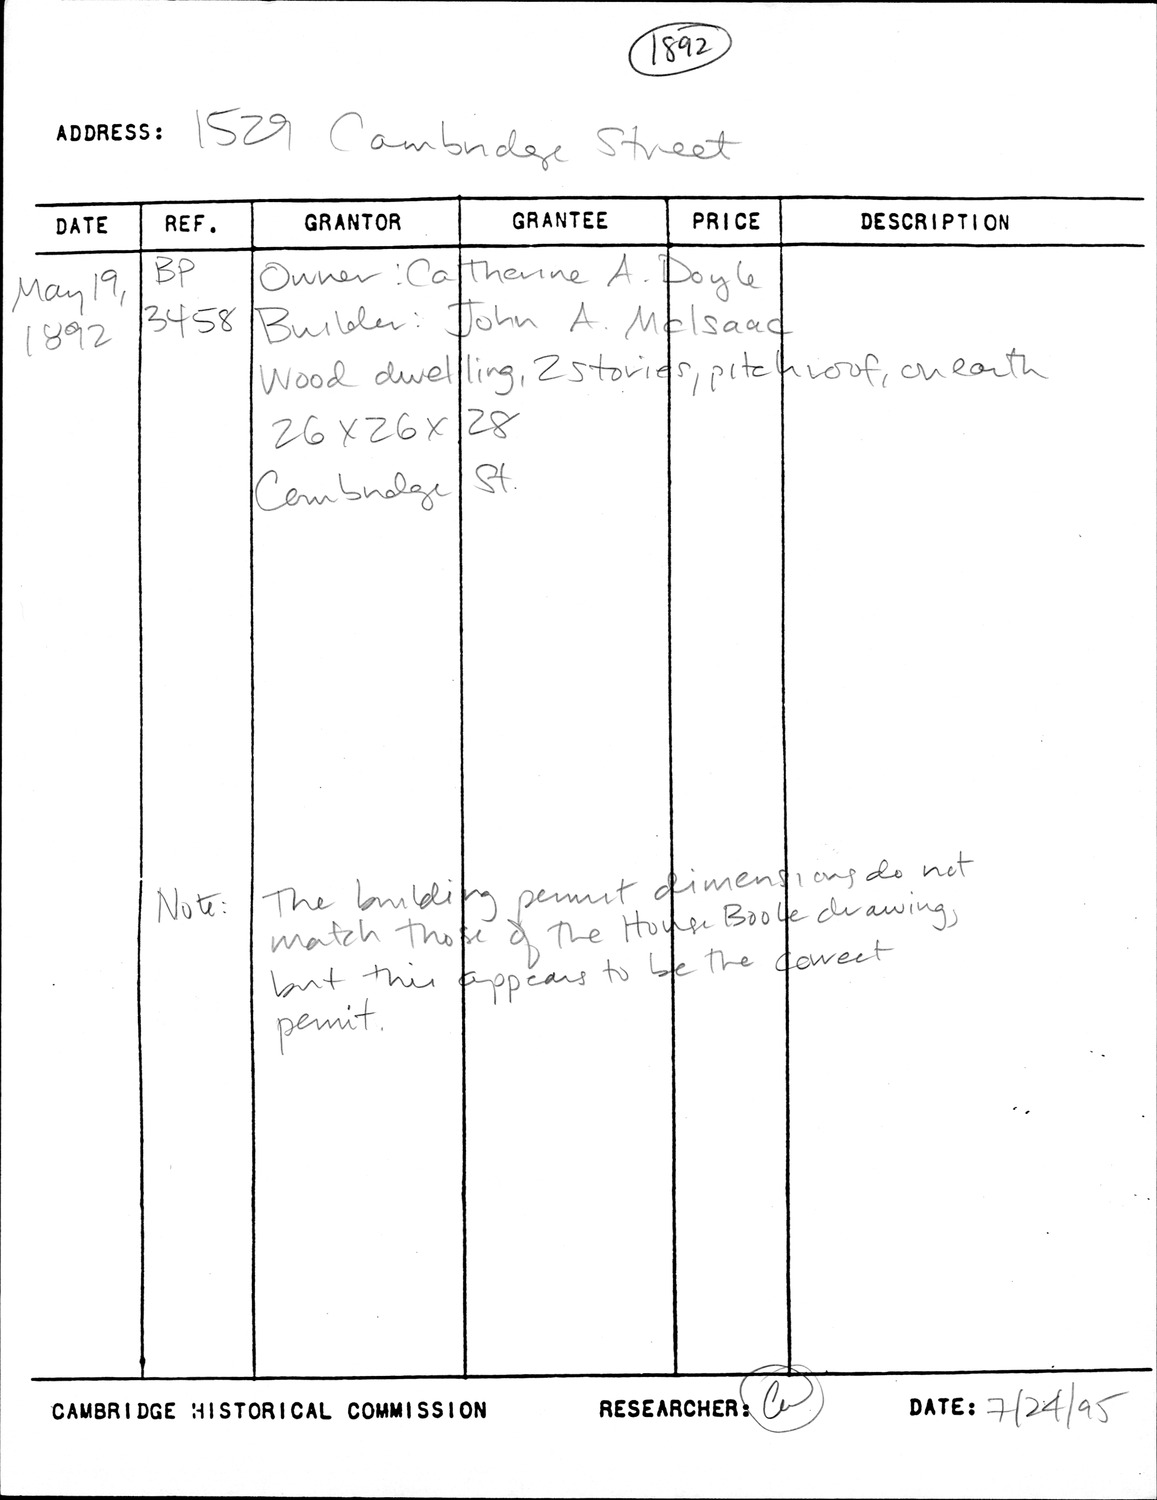 1892
ADDRESS: 1529 Cambridge Street
DATE REF. GRANTOR GRANTEE PRICE DESCRIPTION
May 19, 1892 BP 3458 Owner: Catherine A. Doyle
Builder: John A. McIsaac
Wood dwelling, 2 stories, pitch roof, on earth
26 x 26 x 28
Cambridge St.
Note: The building permit dimensions do not
match those of the House Book drawing,
but this appears to be the correct
permit.
CAMBRIDGE HISTORICAL COMMISSION RESEARCHER: DATE: 7/24/95